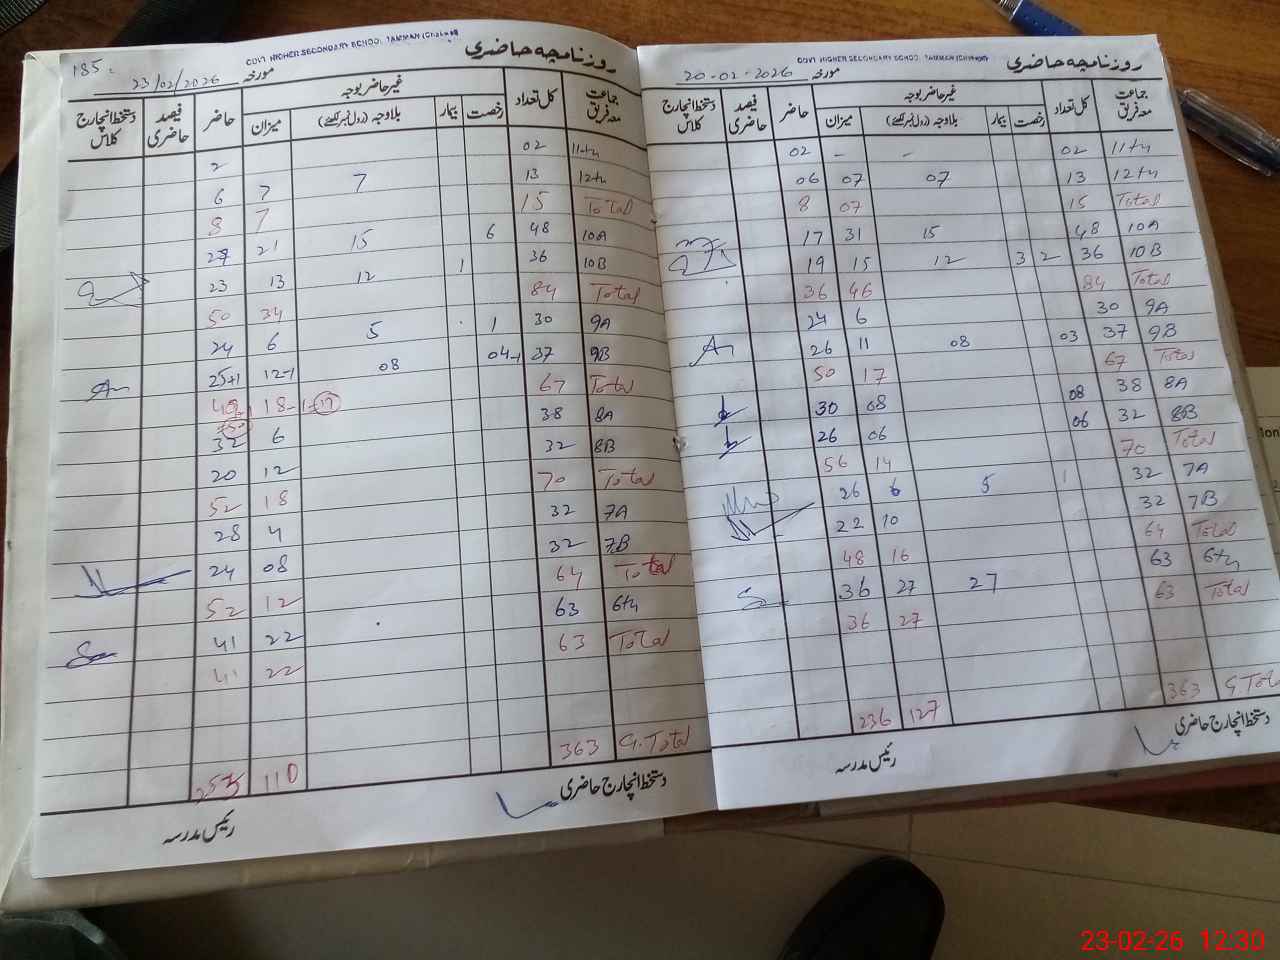 185.
GOVT HIGHER SECONDARY SCHOOL TAMMAN (Chakwal)
روزنامچہ حاضری
مورخہ 23/02/2026
جماعت معہ فریق | کل تعداد | غیر حاضر بوجہ | حاضر | فیصد حاضری | دستخط انچارج کلاس
رخصت | بیمار | بلاوجہ (رول نمبر لکھئے) | میزان
11th 02 2
12th 13 7 7 6
Total 15 7 8
10A 48 6 15 21 27
10B 36 1 12 13 23
Total 84 34 50
9A 30 1 5 6 24
9B 37 04-1 08 12-1 25+1
Total 67 18-1 17 49+1 50
8A 38 6 32
8B 32 12 20
Total 70 18 52
7A 32 4 28
7B 32 08 24
Total 64 12 52
6th 63 22 41
Total 63 22 41
G.Total 363 110 253
دستخط انچارج حاضری
رئیس مدرسہ
GOVT HIGHER SECONDARY SCHOOL TAMMAN (Chakwal)
روزنامچہ حاضری
مورخہ 20-02-2026
جماعت معہ فریق | کل تعداد | غیر حاضر بوجہ | حاضر | فیصد حاضری | دستخط انچارج کلاس
رخصت | بیمار | بلاوجہ (رول نمبر لکھئے) | میزان
11th 02 - - 02
12th 13 07 07 06
Total 15 07 8
10A 48 15 31 17
10B 36 2 3 12 15 19
Total 84 46 36
9A 30 6 24
9B 37 03 08 11 26
Total 67 17 50
8A 38 08 08 30
8B 32 06 06 26
Total 70 14 56
7A 32 1 5 6 26
7B 32 10 22
Total 64 16 48
6th 63 27 27 36
Total 63 27 36
G.Total 363 127 236
دستخط انچارج حاضری
رئیس مدرسہ
23-02-26 12:30